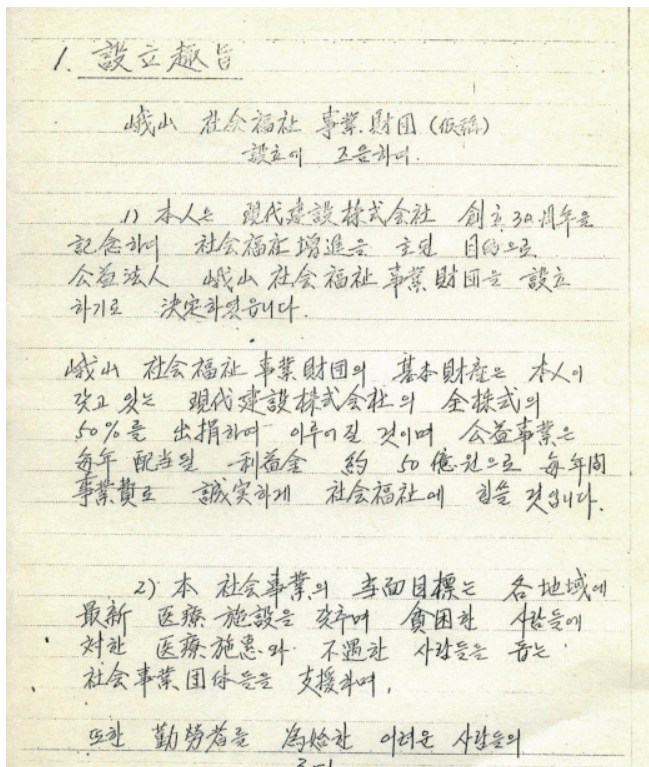 1. 設立趣旨
峨山 社会福祉 事業財団 (仮稱)
設立에 즈음하다.
1) 本人은 現代建設株式会社 創立 30周年을
記念하며 社会福祉增進을 主된 目的으로
公益法人 峨山 社会福祉 事業財団을 設立
하기로 決定하였읍니다.
峨山 社会福祉 事業財団의 基本財産은 本人이
갖고 있는 現代建設株式会社의 全株式의
50%를 出捐하여 이루어질 것이며 公益事業은
每年 配当될 利益金 約 50億원으로 每年間
事業費로 誠実하게 社会福祉에 힘쓸 것입니다.
2) 本 社会事業의 当面目標는 各地域에
最新 医療施設을 갖추며 貧困한 사람들에
対한 医療施惠와 不遇한 사람들을 돕는
社会事業団体들을 支援하며,
또한 勤勞者를 爲始한 어려운 사람들의